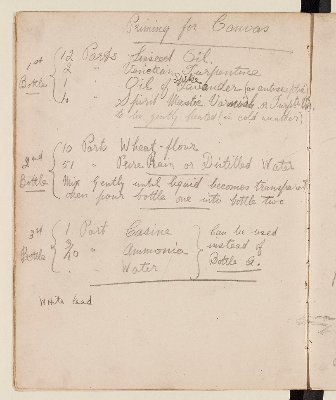 Priming for Canvas
1st Bottle
12 Parts Linseed Oil
2 " Venetian Turpentine
1 " Oil of Spike Lavender (as antiseptic)
4 " Spirit Mastic Varnish or
to be gently heated (in cold weather)
2nd Bottle
10 Parts Wheat-flour
51 " Pure Rain or Distilled Water
Mix gently until liquid becomes transparent
then pour bottle one into bottle two
3rd Bottle
1 Part Casine
" Ammonia
" Water
can be used
instead of
Bottle
White Lead